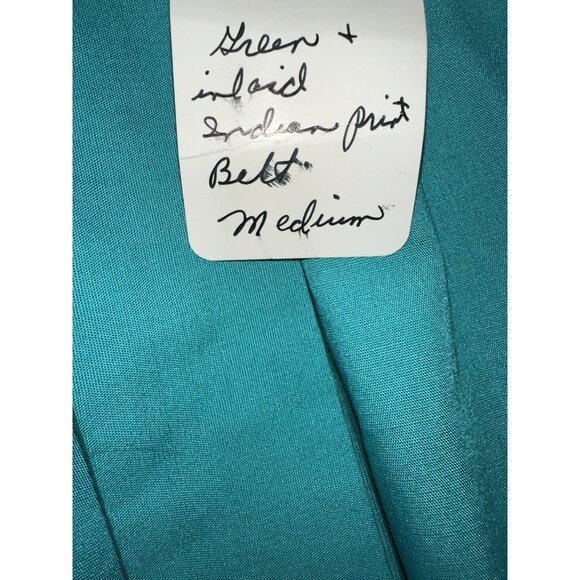 Green +
inlaid
Indian print
Belt
Medium